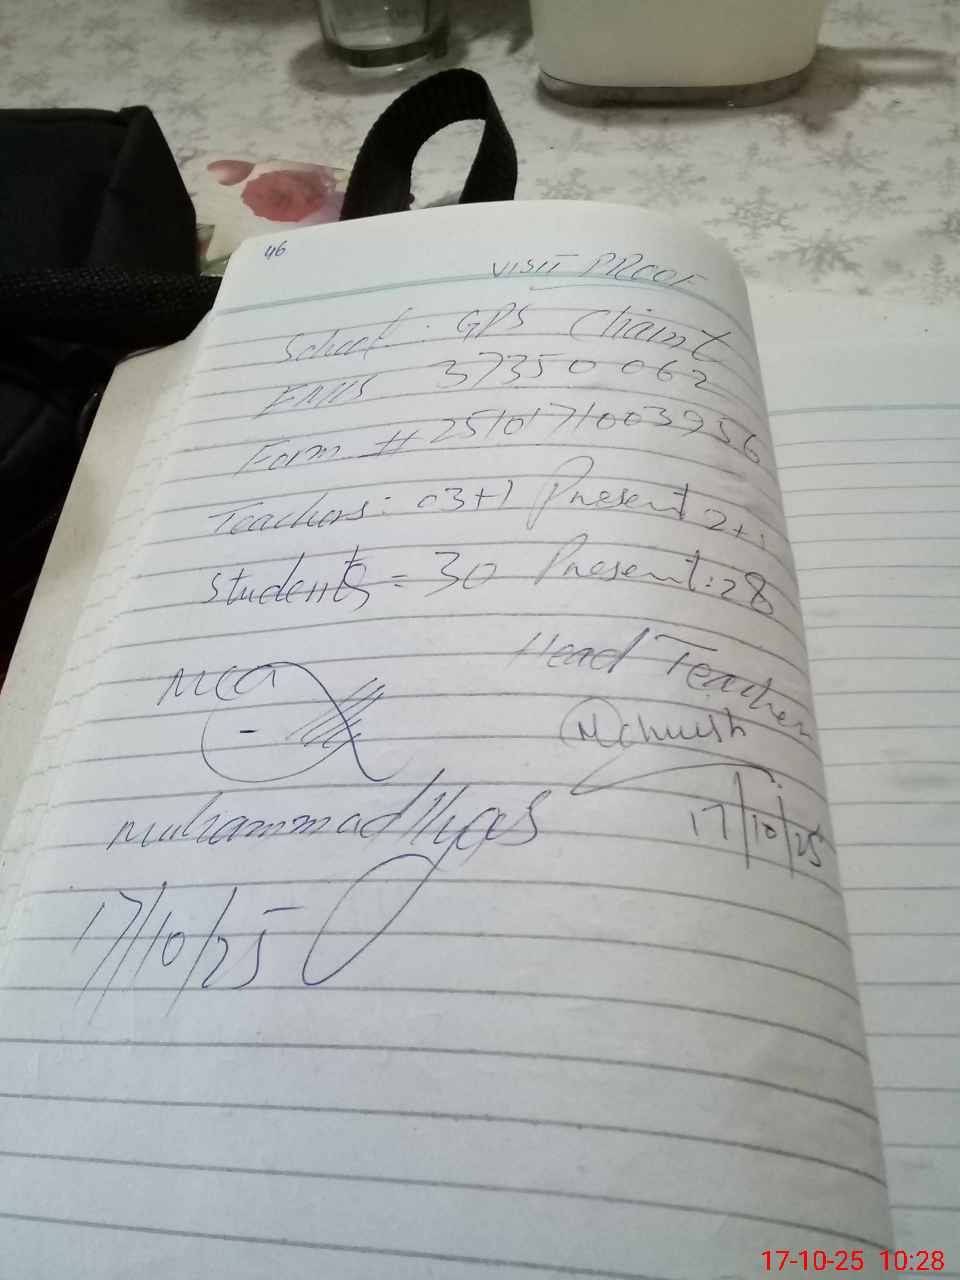 46
VISIT PROOF
School : GPS Chamt
EMIS 37350062
Form # 2510171003956
Teachers: 03+1 Present 2+1
Students = 30 Present: 28
MCA
Head Teacher
Muhammad Ilyas
17/10/25
17/10/25
17-10-25 10:28